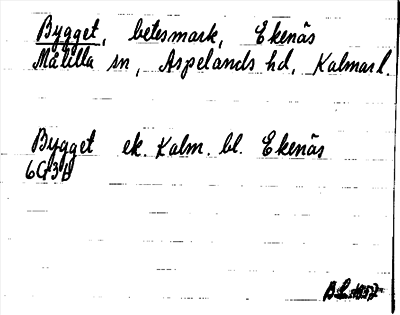 Bygget, betesmark, Ekenäs
Målilla sn, Aspelands hd, Kalmar l.
Bygget ek. Kalm. bl. Ekenäs
6G3b